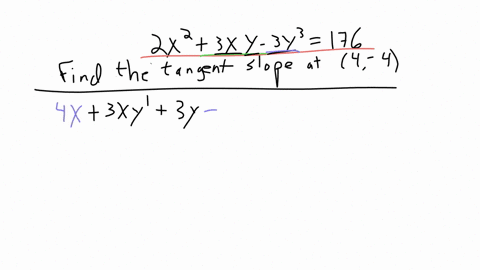 2x² + 3xy - 3y³ = 176
Find the tangent slope at (4,-4)
4x + 3xy' + 3y -